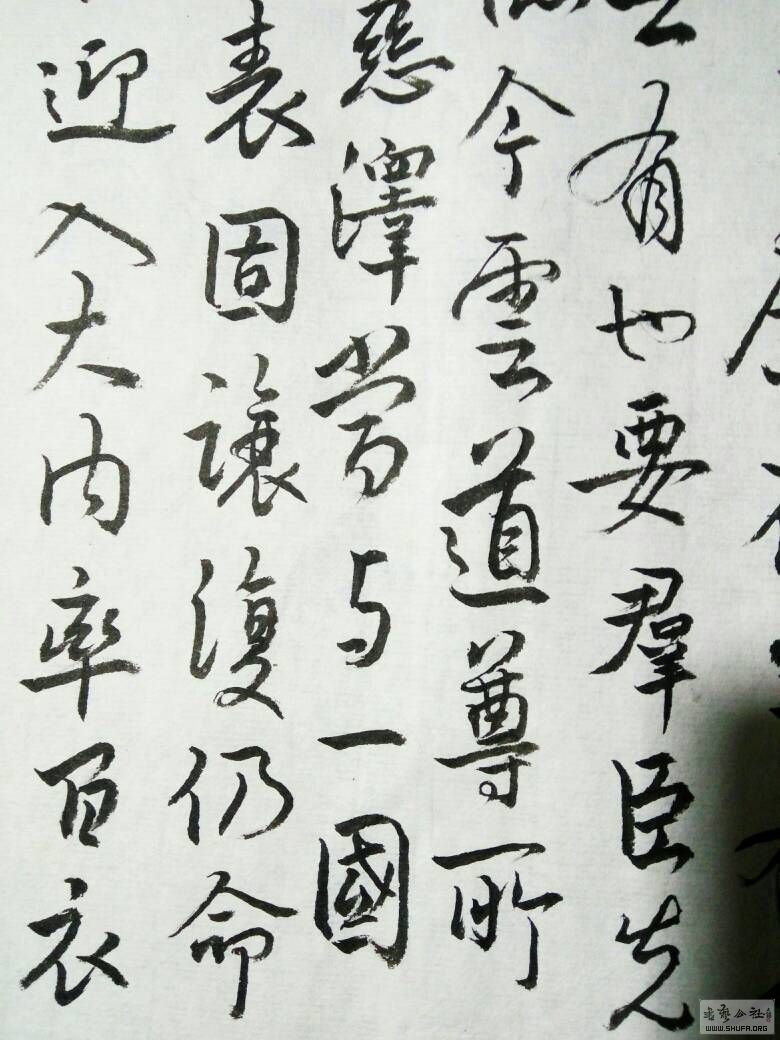 有也要羣臣先
今雲道尊所
慈澤當与一國
表固讓復仍命
迎入大内率百衣
WWW.SHUFA.ORG